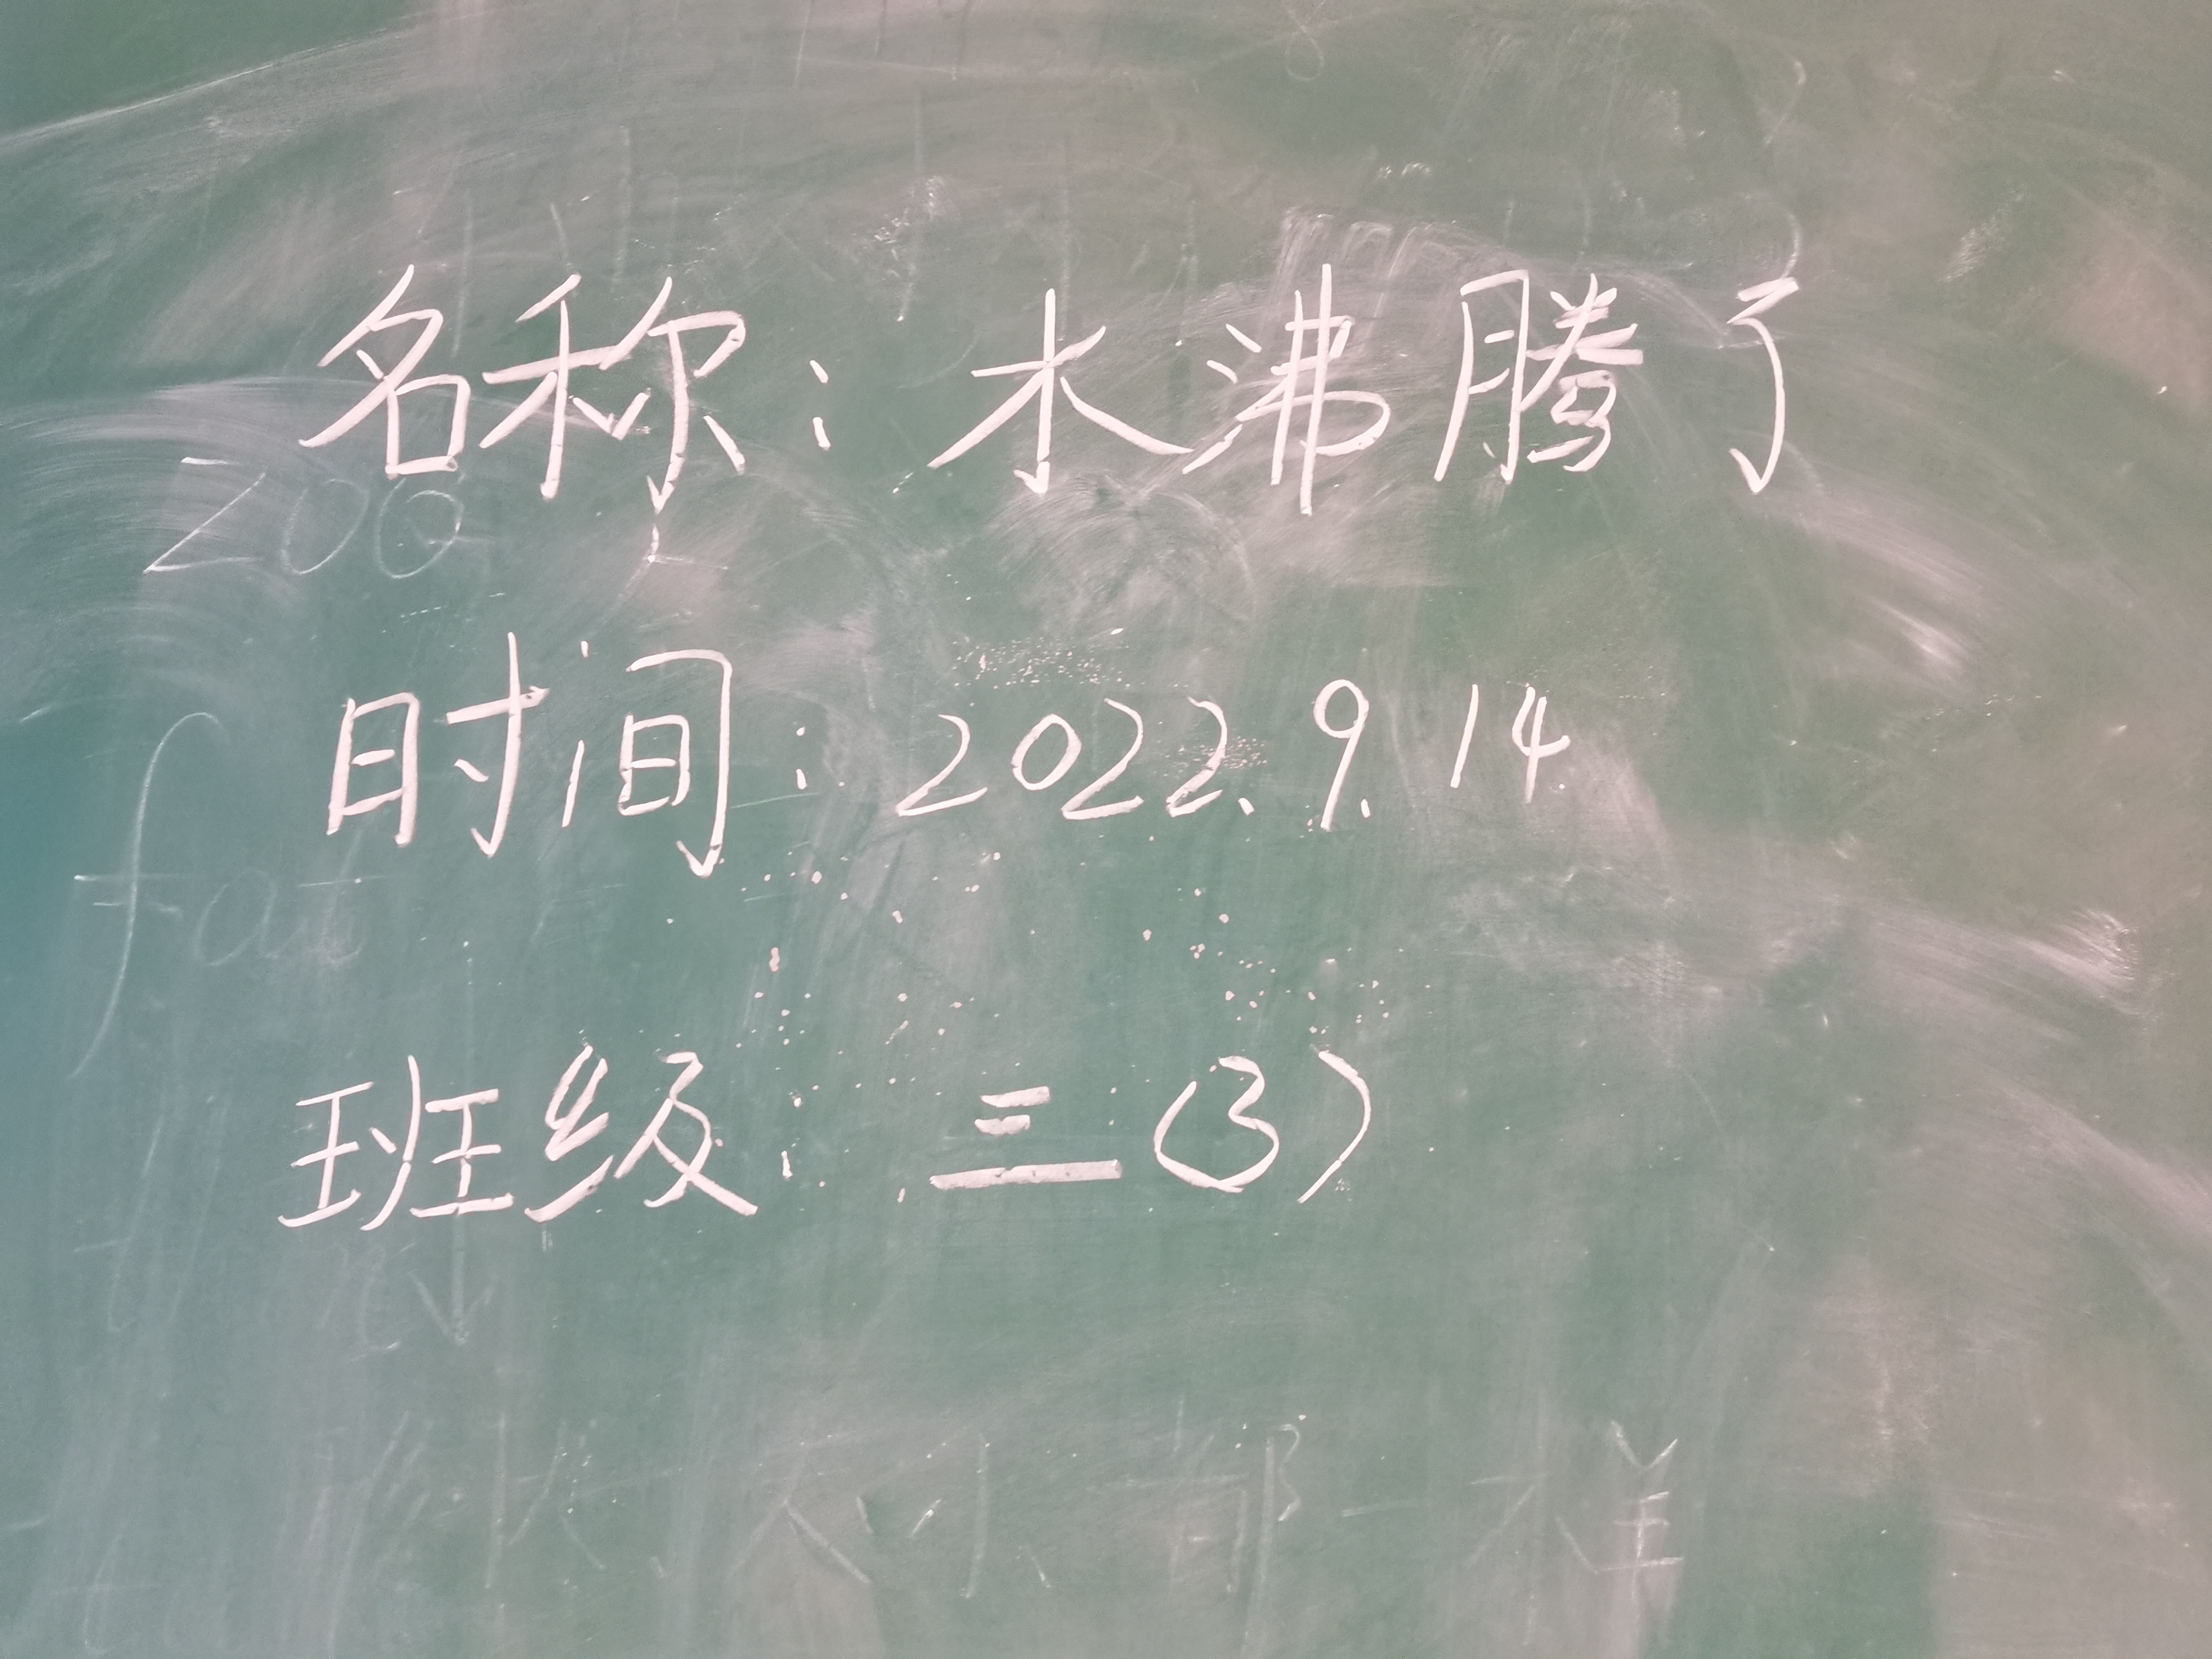 名称：木沸腾了
时间：2022.9.14
班级：三（3）
zoo
fat